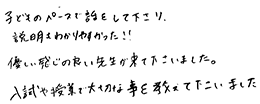 子どものペースで話をして下さり、
説明もわかりやすかった!!
優しい感じの良い先生が来て下さいました。
入試や授業で大切な事を教えて下さいました